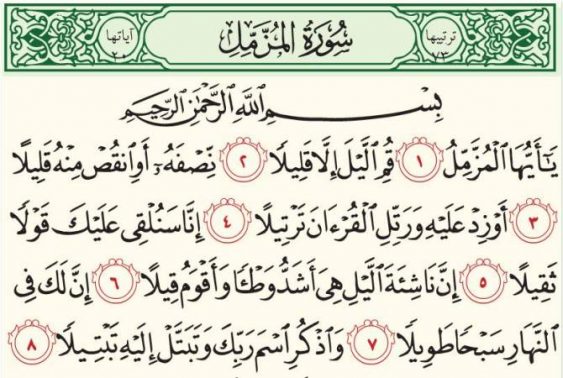 ترتيبها ٧٣ سُورَةُ المُزَّمِّلِ آياتها ٢٠
بِسْمِ اللَّهِ الرَّحْمَٰنِ الرَّحِيمِ
يَٰٓأَيُّهَا ٱلْمُزَّمِّلُ ١ قُمِ ٱلَّيْلَ إِلَّا قَلِيلًا ٢ نِّصْفَهُۥٓ أَوِ ٱنقُصْ مِنْهُ قَلِيلًا
٣ أَوْ زِدْ عَلَيْهِ وَرَتِّلِ ٱلْقُرْءَانَ تَرْتِيلًا ٤ إِنَّا سَنُلْقِى عَلَيْكَ قَوْلًا
ثَقِيلًا ٥ إِنَّ نَاشِئَةَ ٱلَّيْلِ هِىَ أَشَدُّ وَطْـًٔا وَأَقْوَمُ قِيلًا ٦ إِنَّ لَكَ فِى
ٱلنَّهَارِ سَبْحًا طَوِيلًا ٧ وَٱذْكُرِ ٱسْمَ رَبِّكَ وَتَبَتَّلْ إِلَيْهِ تَبْتِيلًا ٨